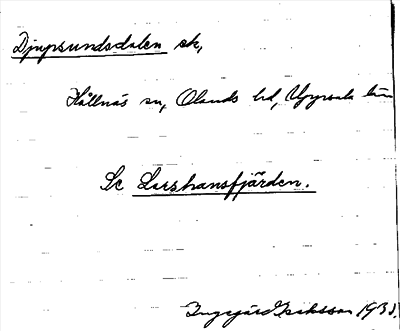 Djupsundsdalen sk,
Hållnäs sn, Olands hd, Uppsala län
Se Larshansfjärden.
Ingegärd Eriksson 193